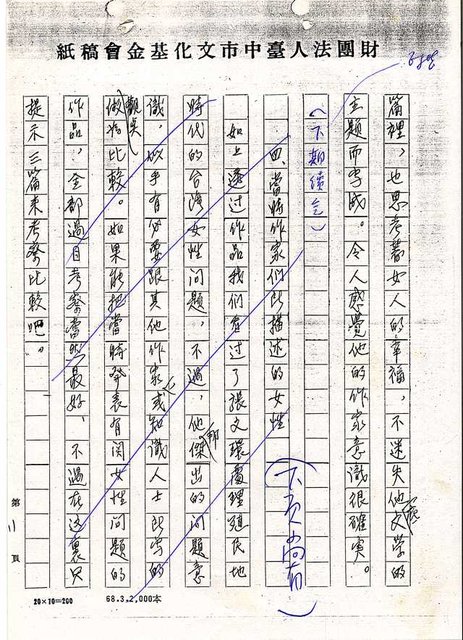 財團法人臺中市文化基金會稿紙
篇裡,也思考著女人的幸福,不迷失他文學的
主題而寫成。令人感覺他的作家意識很確實。
(下期續完)
四、當時作家們所描述的女性
(下頁尚有)
如上透過作品我們看過了張文環處理殖民地
時代的台灣女性問題,不過,他傑出的問題意
識,似乎有必要跟其他作家或知識人士所寫的
做為比較。如果能把當時發表有關女性問題的
作品,全部過目考察當然最好,不過在這裏只
提示三篇來考察比較吧。
第11頁
20×10=200
68.3.2,000本